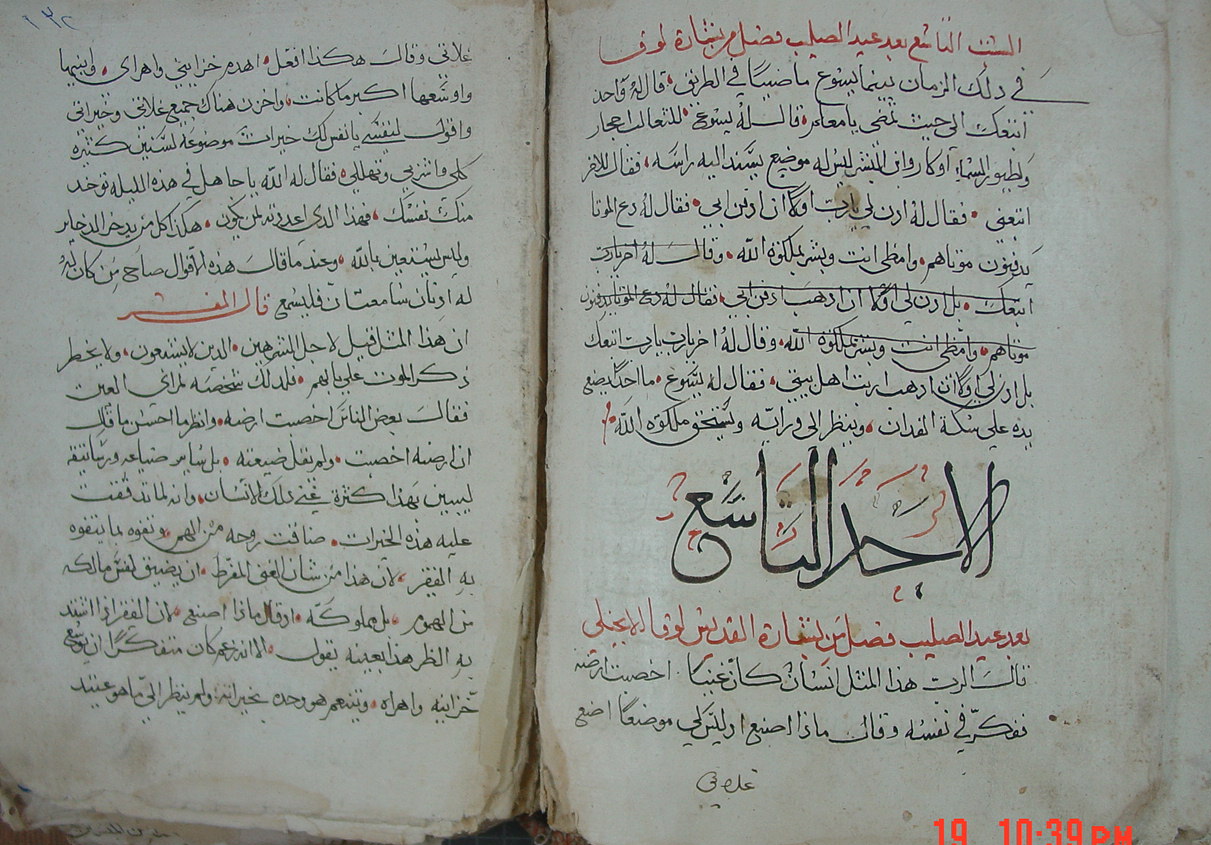 السبت التاسع بعد عيد الصليب فصل من بشارة لوقا
في دلك الزمان بينما يسوع ماضيًا في الطريق، قال له واحد
اتبعك الى حيث تمضي يا معلم، قال له يسوع، للثعالب احجار
ولطيور السماء اوكار وابن البشر ليس له موضع يسند اليه راسه، فقال للاخر
اتبعني، فقال له ادن لي يارب اولًا ان ادفن ابي، فقال له دع الموتا
يدفنون موتاهم، وامظي انت وبشر بملكوة الله، وقال له اخر يارب
اتبعك، بل ادن لي اولًا ان ادهب ادفن ابي، فقال له دع الموتا يدفنون
موتاهم، وامظي انت وبشر بملكوة الله، وقال له اخر يارب اتبعك
بل ادن لي اولًا ان ادهب ارتب اهل بيتي، فقال له يسوع، ما احدًا يضع
يده على سكة الفدان، وينظر الى ورائه ويستحق ملكوة الله
الاحد التاسع
بعد عيد الصليب فصل من بشارة القديس لوقا الانجيلي
قال الرب هذا المثل انسان كان غنيًا اخصبت ارضه
ففكر في نفسه وقال ماذا اصنع اد ليس لي موضعًا اضع
غلاتي
١٣٢
غلاتي وقال هكذا افعل، اهدم خزايني واهراي، وابنيها
واوسعها اكبر ما كانت، واخزن هناك جميع غلاتي وخيراتي
واقول لنفسي يا نفس لك خيرات موضوعه لسنين كثيرة
كلي واشربي وتهللي، فقال له الله يا جاهل في هذه الليله توخد
منك نفسك، فهذا الدي اعددته لمن يكون، هكذا كل من يدخر الدخاير
وليس يستعين بالله، وعند ما قال هذه الاقوال صاح من كان له
له ادنان سامعتان فليسمع قال المفسر
ان هذا المثل قيل لاجل الشرهين، الدين لا يشبعون، ولا يخطر
ذكر الموت على بالهم، فلدلك شخصه لمراي العين
فقال بعض الناس اخصبت ارضه، وانظر ما احسن ما قال
ان ارضه اخصبت، ولم يقل ضيعته، بل ساير ضياعه ورساتيقه
ليبين بهذا كثرة غني دلك الانسان، وانه لما تدفقت
عليه هذه الخيرات، ضاقت روحه من الهم، وتفوه بما يتفوه
به الفقير، لان هذا من شان الغني المفرط، ان يضيق لنفس مالكه
من الهموم، بل مملوكه، اد قال ماذا اصنع، لان الفقير ادا اشتد
به الظر هذا بعينه يقول، الا انه زعم كان متفكرًا ان يوسع
خزاينه واهراه، ويتنعم هو وحده بخيراته ولم ينظر الى ما هو عتيد
19 10:39 PM